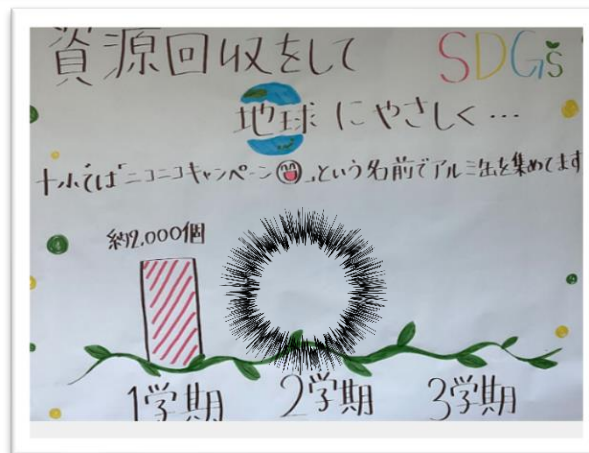 資源回収をして SDGs
地球にやさしく…
十小では「ニコニコキャンペーン」という名前でアルミ缶を集めてます
1学期 2学期 3学期